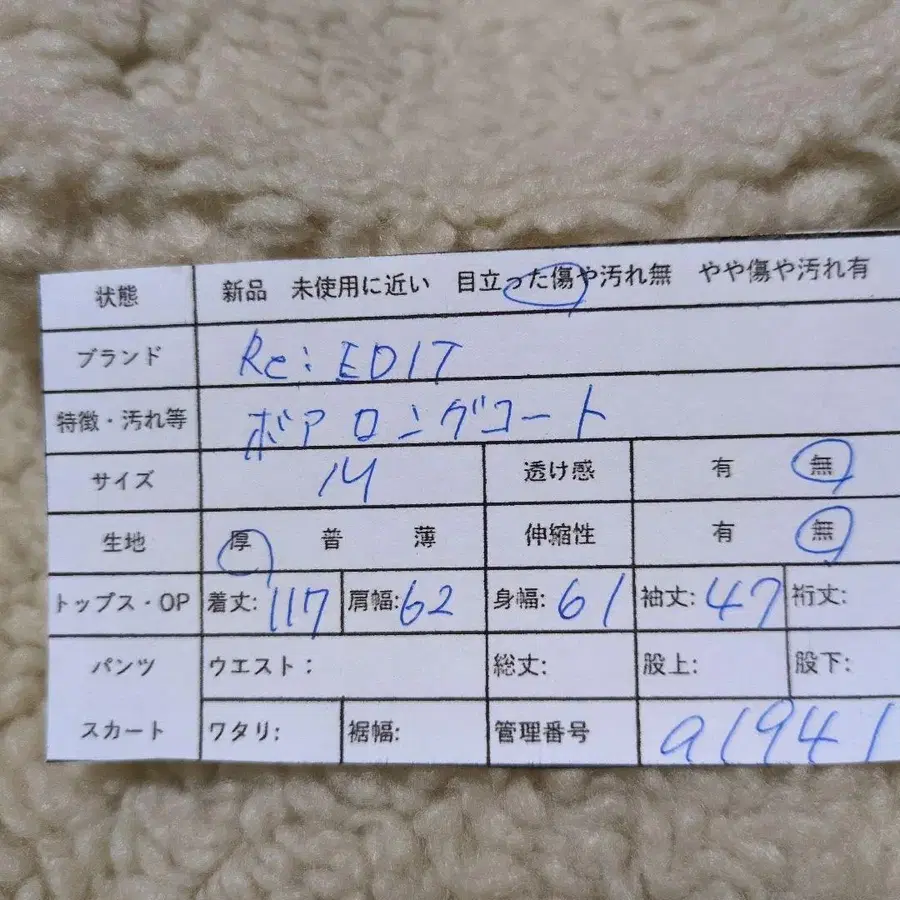 状態 新品 未使用に近い 目立った傷や汚れ無 やや傷や汚れ有
ブランド Re:EDIT
特徴・汚れ等 ボアロングコート
サイズ M 透け感 有 無
生地 厚 普 薄 伸縮性 有 無
トップス・OP 着丈:117 肩幅:62 身幅:61 袖丈:47 裄丈:
パンツ ウエスト: 総丈: 股上: 股下:
スカート ワタリ: 裾幅: 管理番号 a1941